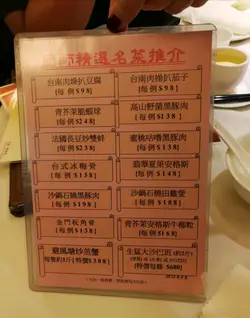 廚師精選名菜推介
台南肉燥扒豆腐
[每例$98]
台南肉燥扒茄子
[每例$98]
青芥茉脆蝦球
[每例$248]
高山野菌黑豚肉
[每例$138]
法國長豆炒雙蚌
[每例$238]
蜜桃咕嚕黑豚肉
[每例$138]
台式冰梅骨
[每例$138]
翡翠夏果安格斯
[每例$168]
沙鍋石燒黑豚肉
[每例$198]
沙鍋石燒田雞煲
[每例$188]
金門杬角骨
[每例$138]
青芥茉安格斯牛柳粒
[每例$168]
避風塘炒蒸蟹
生猛大沙巴班
(特價每條 $680)